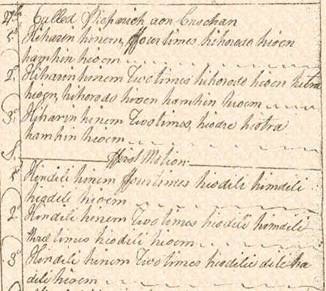 27th Called Fispairich aon Eruchan
1st Hiharin hinem, ffour times hihorodo hioen
hamhin hioem
2d Hiharin hinem Two times hihorodo hioen hiotra
hioen, hihorodo hioen hamhin hioem
3d Hiharin hinem Two times, hiodre hiotra
hamhin hioem
ffirst Motion
1st Hindili hinem ffour times hiodili himdili
hiodili hioem
2d Hindili hinem Two times hiodili himdili
three times hiodili hioem
3d Hindili hinem Two times hiodili dili tra
dili hioem